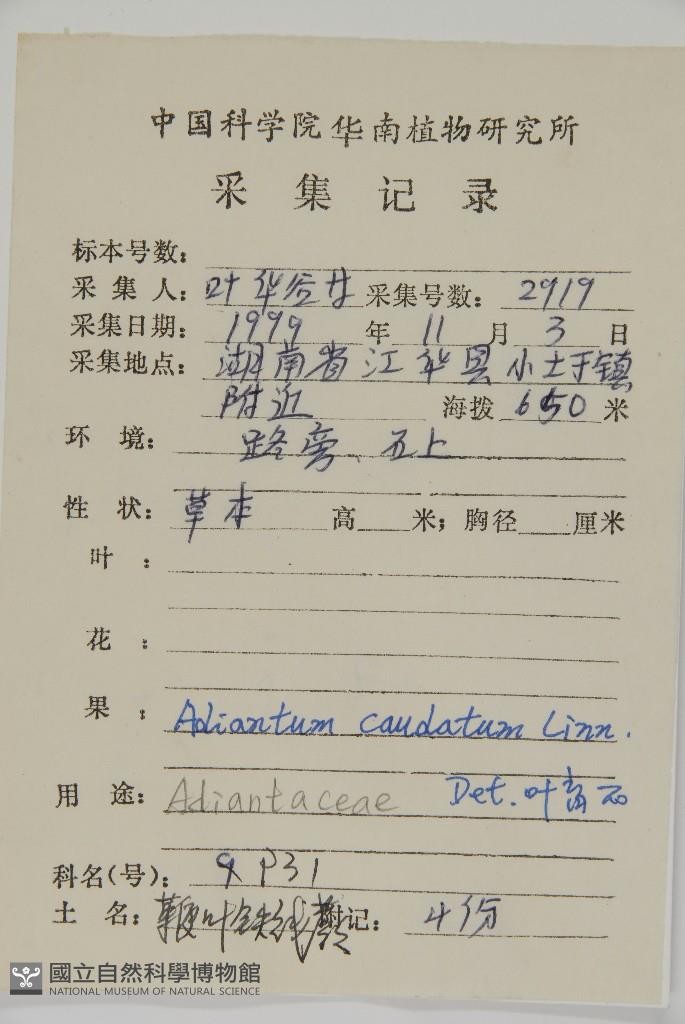 中国科学院华南植物研究所
采集记录
标本号数：
采集人：叶华谷 采集号数：2919
采集日期：1999年11月3日
采集地点：湖南省江华县小圩镇
附近 海拨650米
环境：路旁、石上
性状：草本 高 米；胸径 厘米
叶：
花：
果：Adiantum caudatum Linn.
用途：Adiantaceae Det. 叶育石
科名(号)：P31
土名：鞭叶铁线蕨 附记：4份
國立自然科學博物館
NATIONAL MUSEUM OF NATURAL SCIENCE